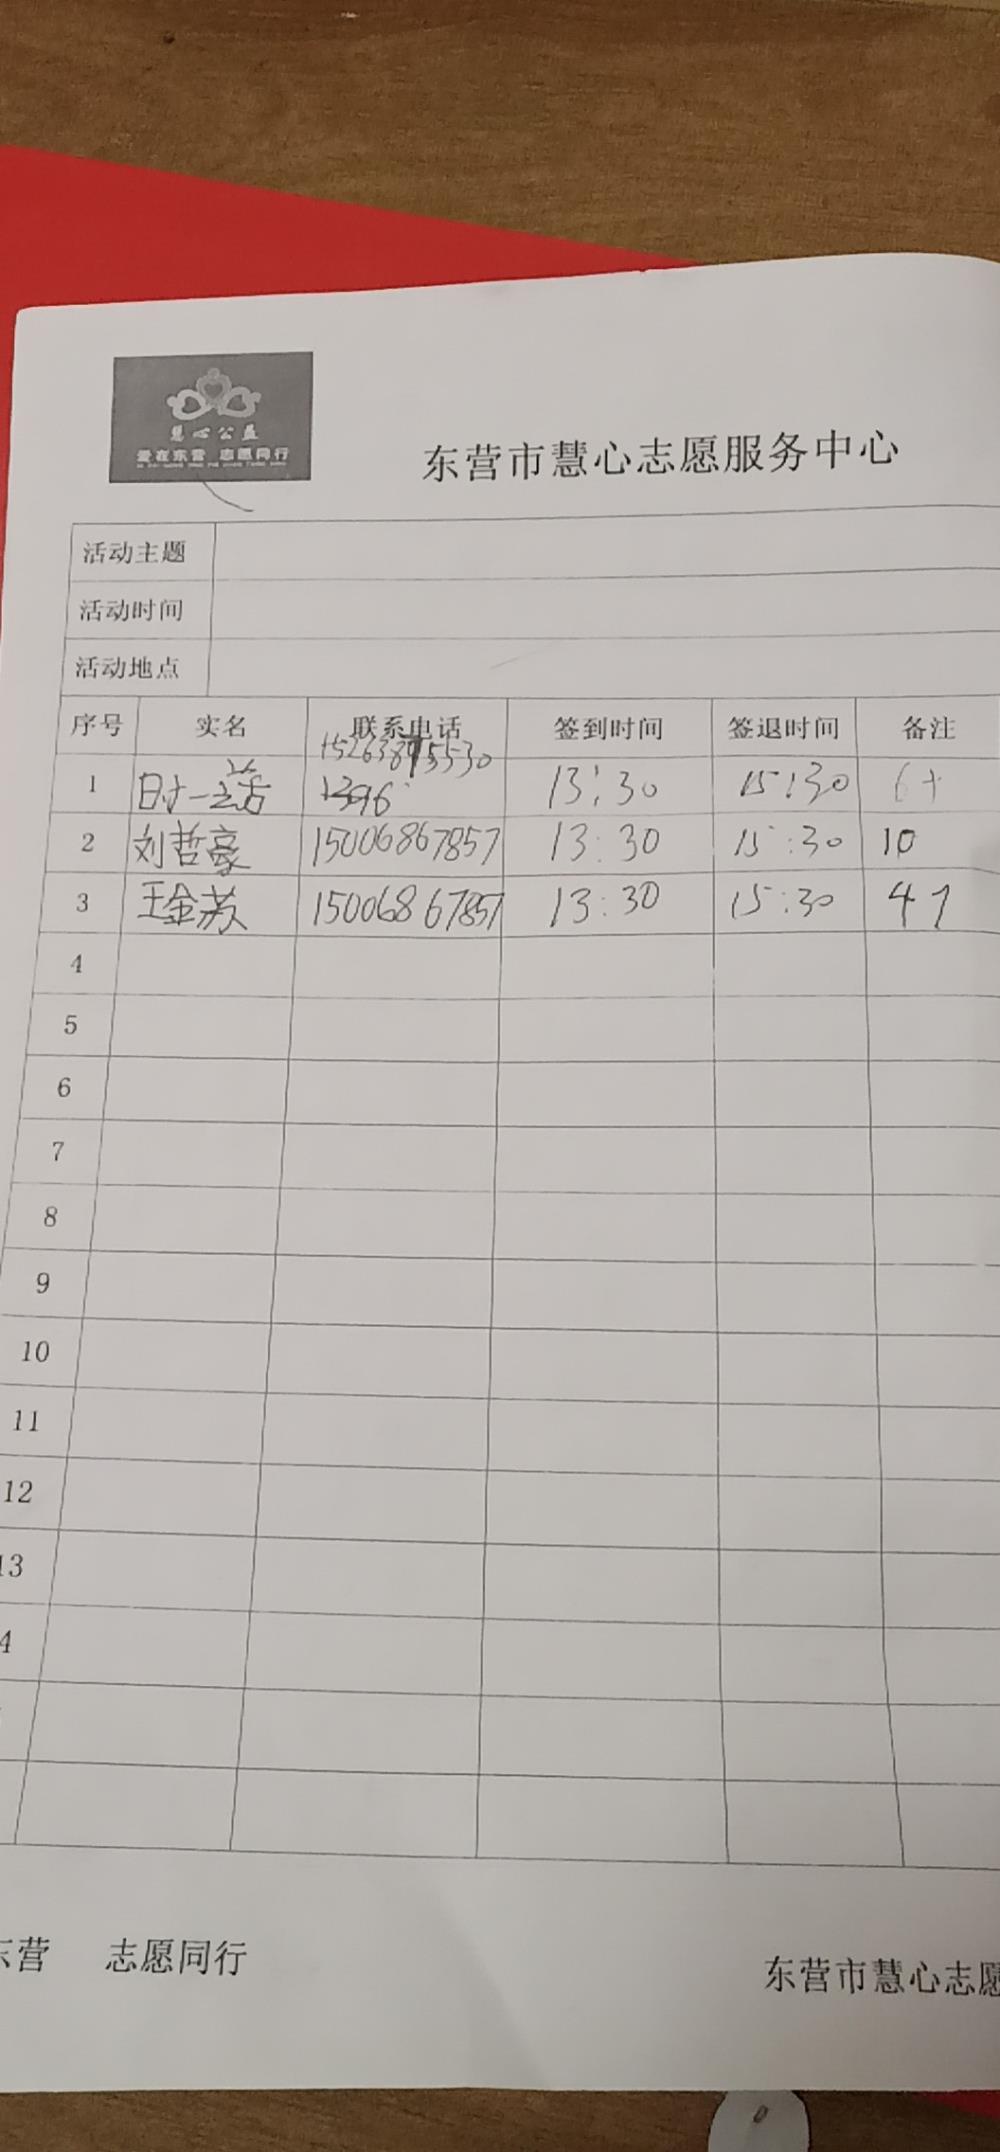 慧心公益
爱在东营 志愿同行
东营市慧心志愿服务中心
活动主题
活动时间
活动地点
序号 实名 联系电话 签到时间 签退时间 备注
1 时一 13:30 15:30 6+
2 刘哲豪 15006867857 13:30 15:30 10
3 王金苏 15006867857 13:30 15:30 47
4
5
6
7
8
9
10
11
12
13
4
东营 志愿同行
东营市慧心志愿